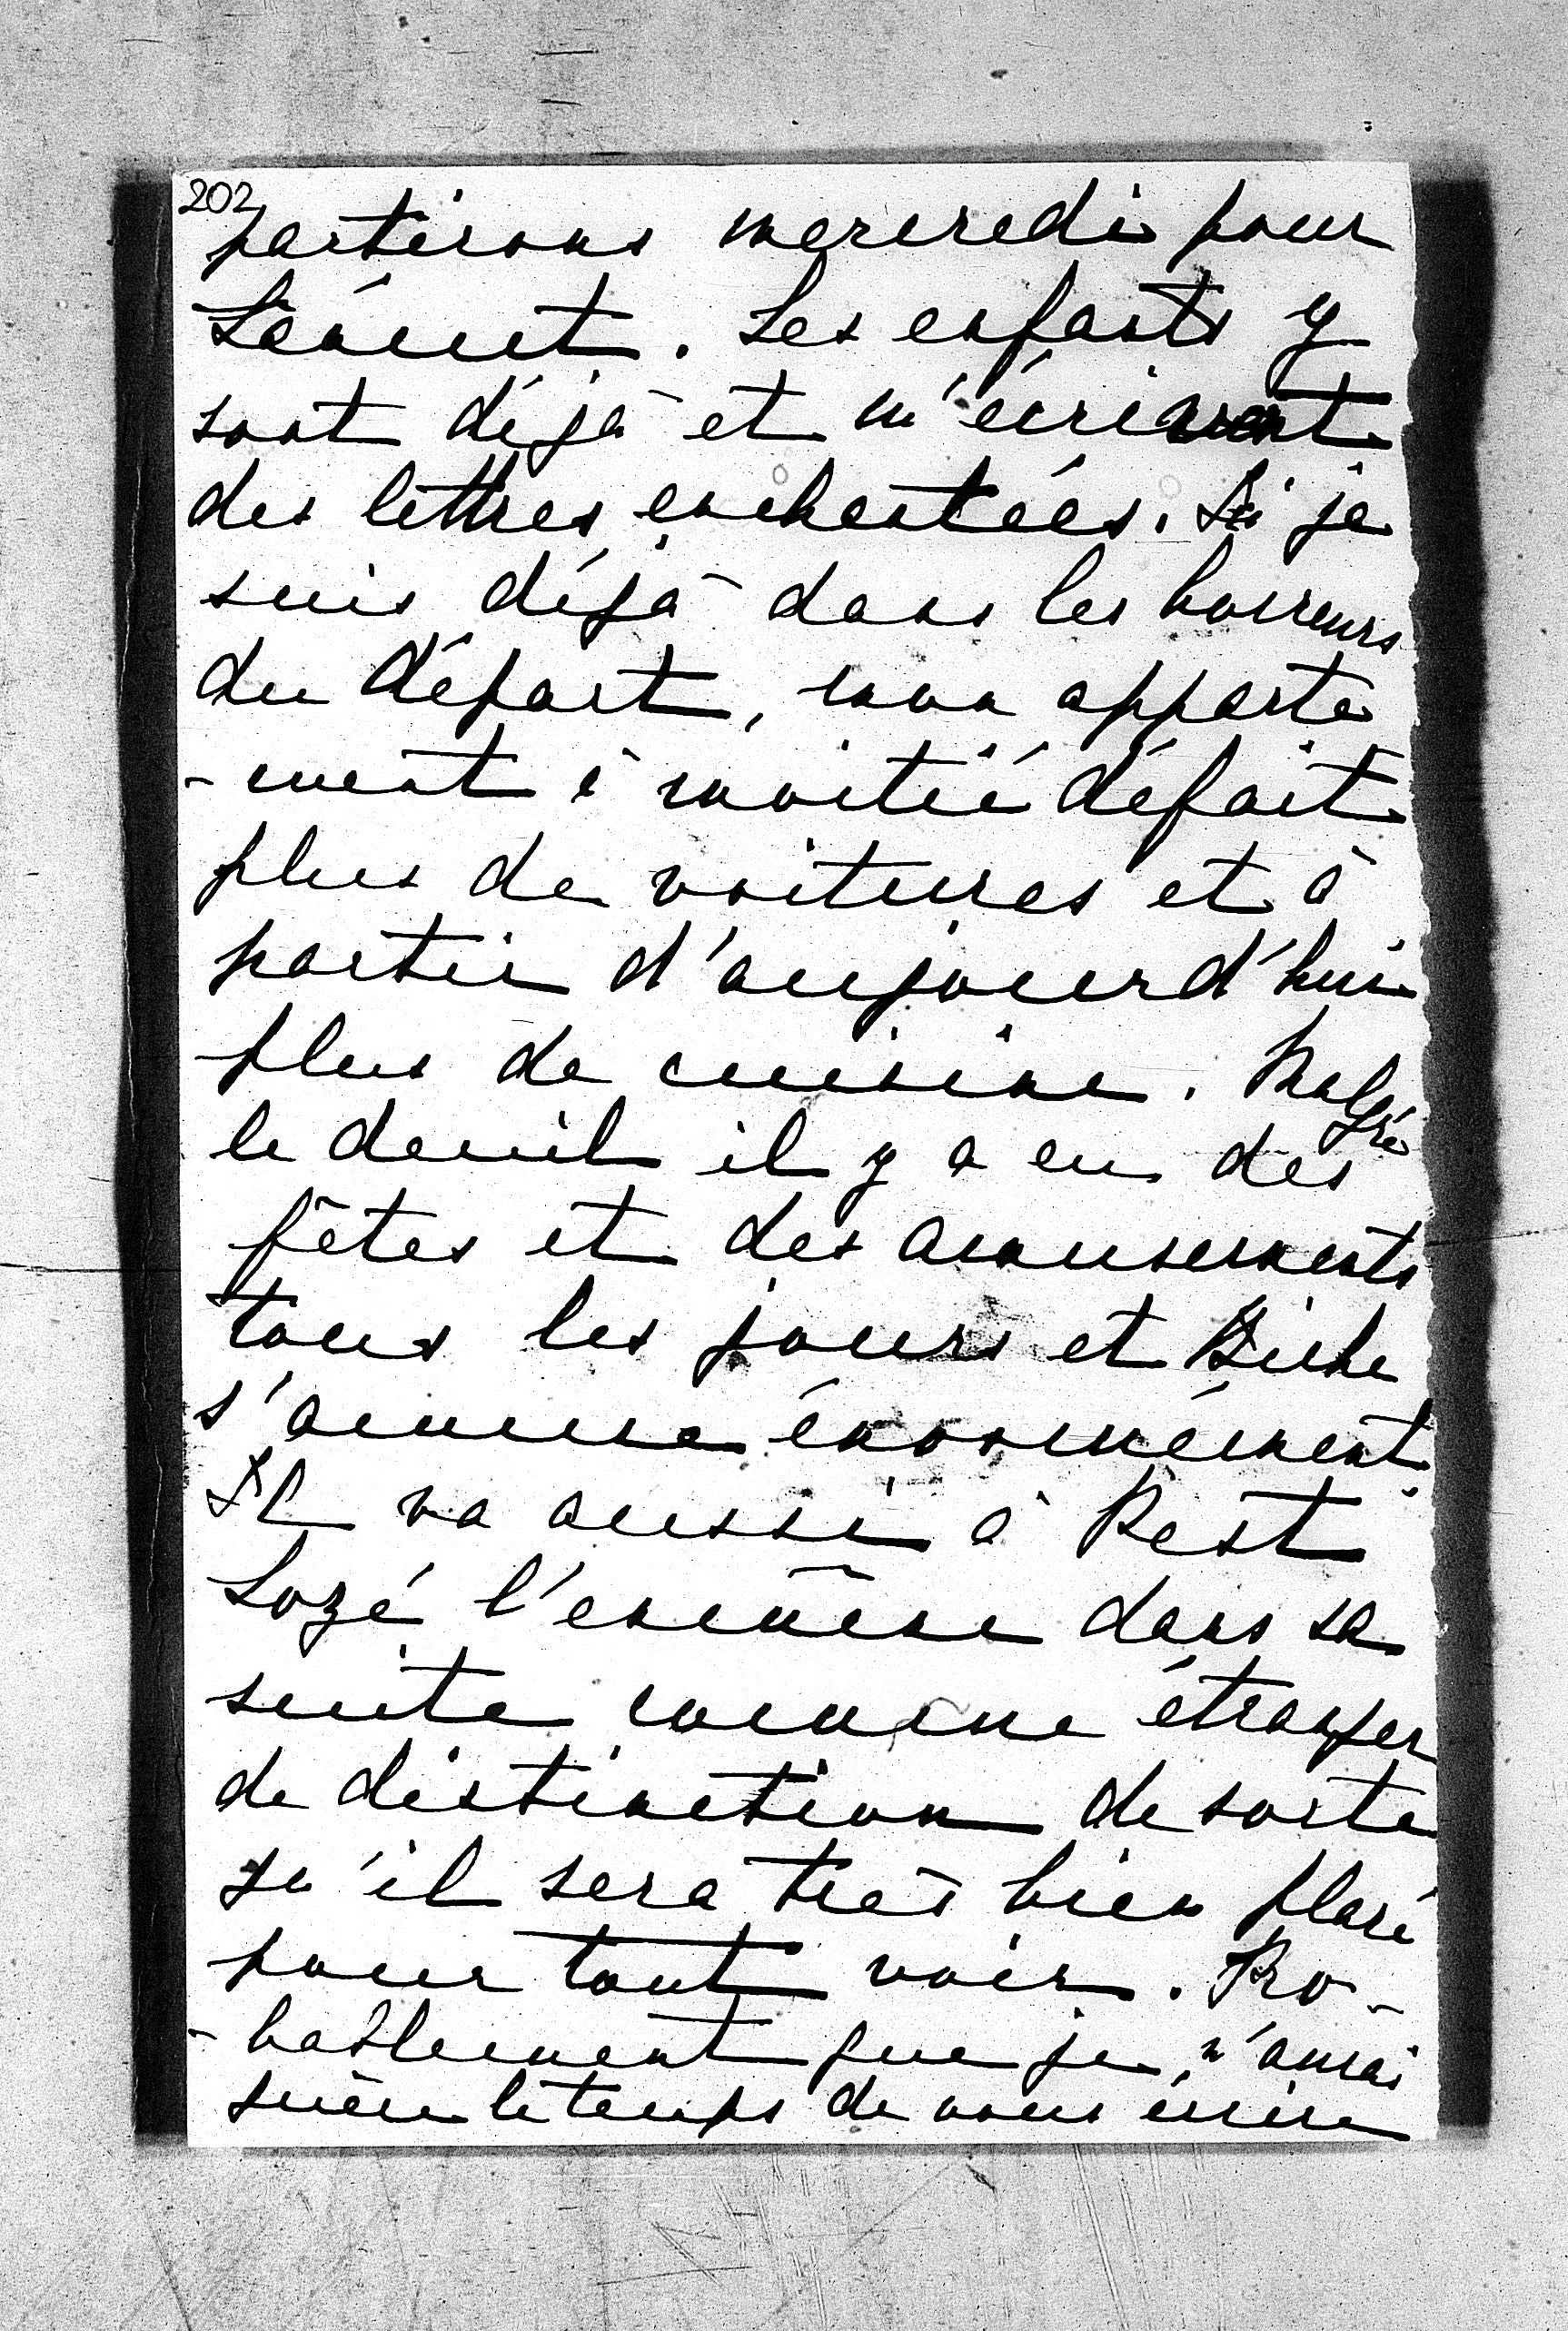 202
partirons mercredi pour
Léanut. Les enfants y
sont déjà et m'écrivent
des lettres enchantées. Ici je
suis déjà dans les horreurs
du départ, mon apparte
-ment à moitié défait
plus de voitures et à
partir d'aujourd'hui
plus de cuisine. Malgré
le deuil il y a eu des
fêtes et des amusements
tous les jours et Biche
s'amuse énormément.
Il va aussi à Pest
Lozé l'emmène dans sa
suite comme étranger
de distinction de sorte
qu'il sera très bien placé
pour tout voir. Pro-
-bablement que je n'aurai
guère le temps de vous écrire